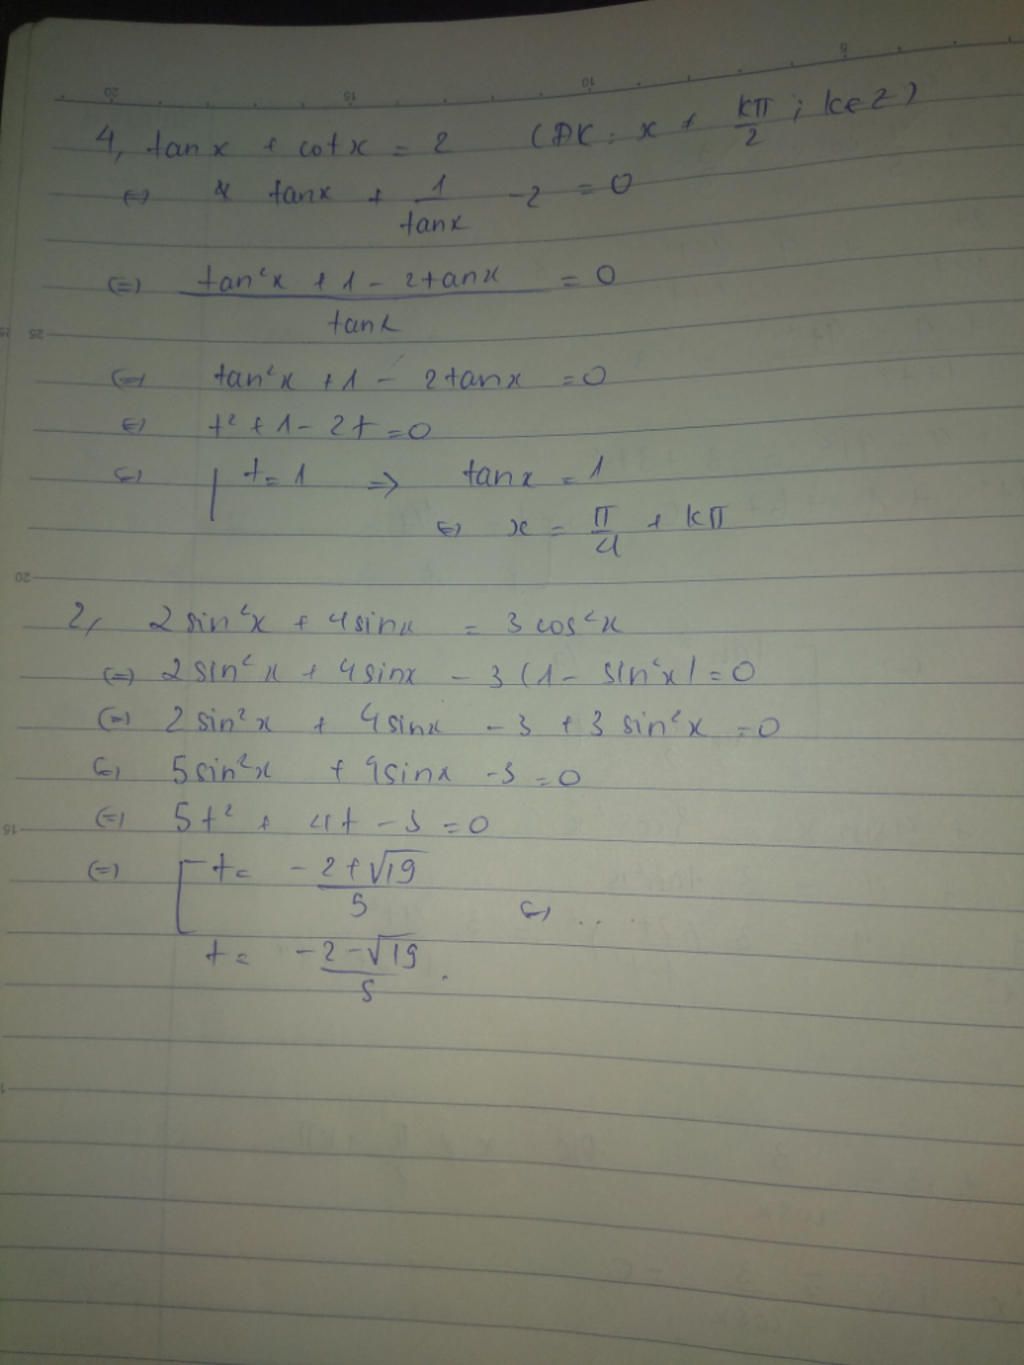 4, tanx + cotx = 2 (ĐK: x ≠ kπ/2 ; k∈Z)
(=) tanx + 1/tanx - 2 = 0
(=) (tan²x + 1 - 2tanx)/tanx = 0
(=) tan²x + 1 - 2tanx = 0
(=) t² + 1 - 2t = 0
(=) t = 1 => tanx = 1
(=) x = π/4 + kπ
2, 2sin²x + 4sinx = 3cos²x
(=) 2sin²x + 4sinx - 3(1 - sin²x) = 0
(=) 2sin²x + 4sinx - 3 + 3sin²x = 0
(=) 5sin²x + 4sinx - 3 = 0
(=) 5t² + 4t - 3 = 0
(=) t = (-2+√19)/5
(=) ...
t = (-2-√19)/5.